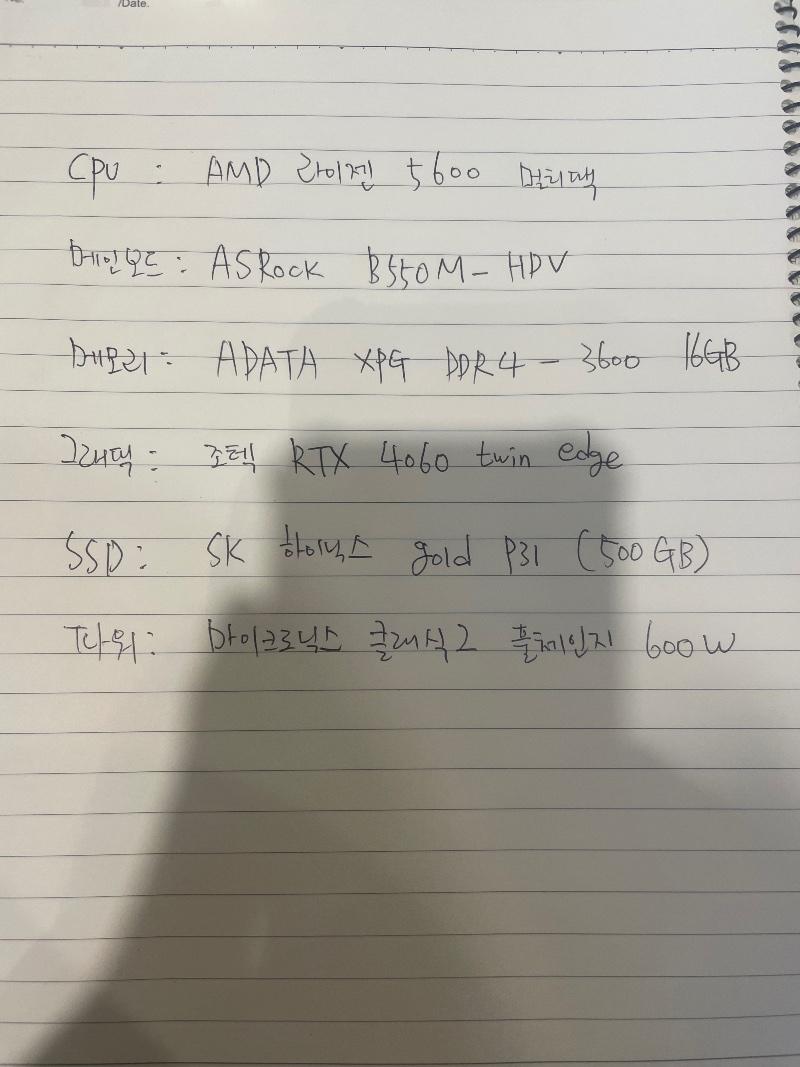 /Date.
CPU : AMD 라이젠 5600 멀티팩
메인보드 : ASRock B550M-HDV
메모리 : ADATA XPG DDR4 - 3600 16GB
그래픽 : 조텍 RTX 4060 twin edge
SSD : SK 하이닉스 gold P31 (500GB)
파워 : 마이크로닉스 클래식2 풀체인지 600W